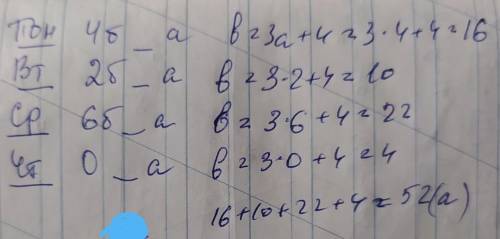 Пон 4б _ а в = 3а + 4 = 3·4+4 = 16
Вт 2б _ а в = 3·2+4 = 10
Ср 6б _ а в = 3·6 + 4 = 22
Чт 0 _ а в = 3·0 + 4 = 4
16+10+22+4 = 52(а)